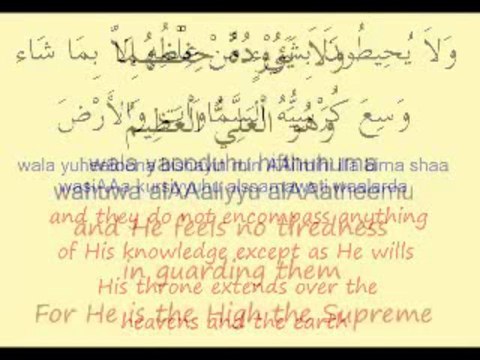 وَلَا يُحِيطُونَ بِشَيْءٍ مِّنْ عِلْمِهِ إِلَّا بِمَا شَاء
وَلَا يَؤُودُهُ حِفْظُهُمَا
وَسِعَ كُرْسِيُّهُ السَّمَاوَاتِ وَالْأَرْضَ
وَهُوَ الْعَلِيُّ الْعَظِيمُ
wala yuheetoona bishayin min AAilmihi illa bima shaa
wala yaooduhu hifthuhuma
wasiAAa kursiyyuhu alssamawati waalarda
wahuwa alAAaliyyu alAAatheemu
and they do not encompass anything
and He feels no tiredness
of His knowledge except as He wills
in guarding them
His throne extends over the
For He is the High the Supreme
heavens and the earth